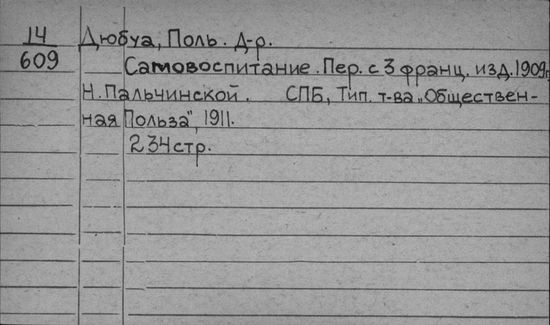 14 Дюбуа, Поль. Д-р.
609 Самовоспитание. Пер. с 3 франц. изд. 1909г.
Н. Пальчинской. СПБ, Тип. т-ва „Обществен-
ная Польза", 1911.
234 стр.